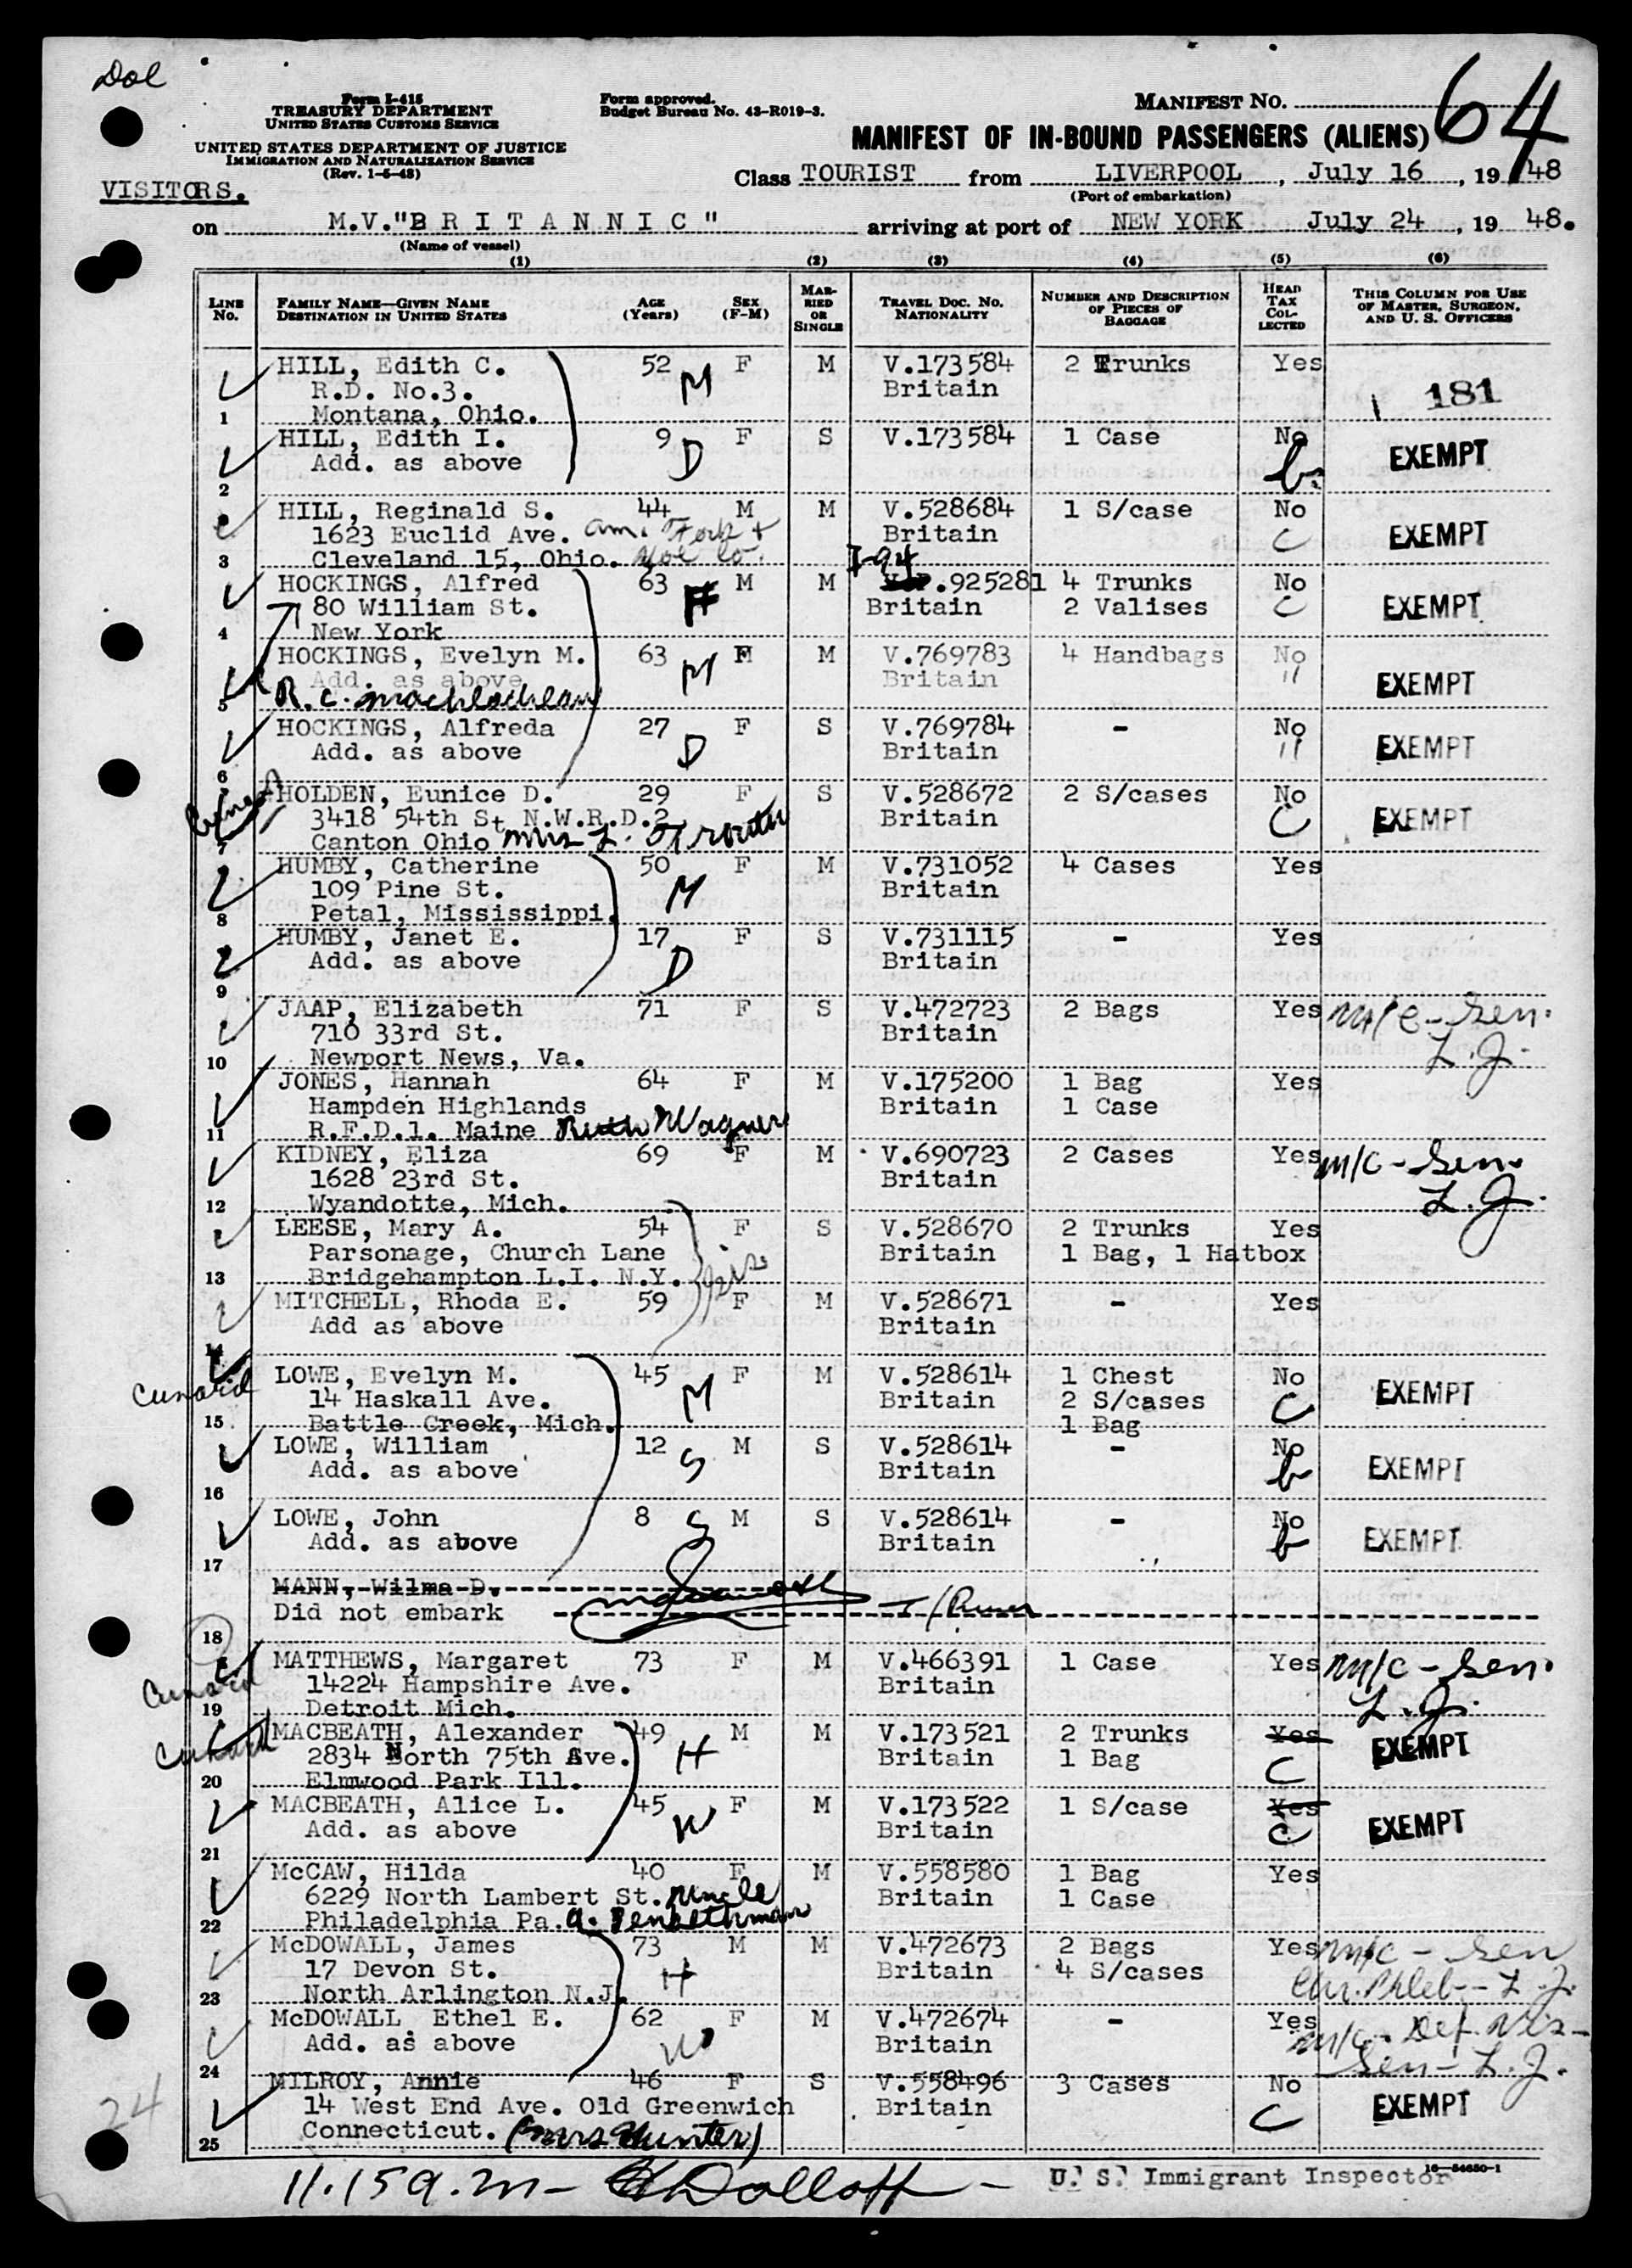 Dol
Form I-415
TREASURY DEPARTMENT
UNITED STATES CUSTOMS SERVICE
UNITED STATES DEPARTMENT OF JUSTICE
IMMIGRATION AND NATURALIZATION SERVICE
(Rev. 1-5-48)
Form approved.
Budget Bureau No. 43-R019-3.
MANIFEST NO. 64
MANIFEST OF IN-BOUND PASSENGERS (ALIENS)
VISITORS.
Class TOURIST from LIVERPOOL, July 16, 1948
(Port of embarkation)
on M.V."B R I T A N N I C" arriving at port of NEW YORK July 24, 19 48.
(Name of vessel)
(1) (2) (3) (4) (5) (6)
LINE No. FAMILY NAME—GIVEN NAME DESTINATION IN UNITED STATES AGE (Years) SEX (F-M) MARRIED OR SINGLE TRAVEL DOC. NO. NATIONALITY NUMBER AND DESCRIPTION OF PIECES OF BAGGAGE HEAD TAX COLLECTED THIS COLUMN FOR USE OF MASTER, SURGEON, AND U. S. OFFICERS
HILL, Edith C. 52 M F M V.173584 2 Trunks Yes
R.D. No.3. Britain 181
1 Montana, Ohio.
HILL, Edith I. 9 D F S V.173584 1 Case No EXEMPT
Add. as above b
2
HILL, Reginald S. 44 M M V.528684 1 S/case No
1623 Euclid Ave. Am. Fork & Britain C EXEMPT
3 Cleveland 15, Ohio. Hoe Co. I-94
HOCKINGS, Alfred 63 M M .925281 4 Trunks No
80 William St. Britain 2 Valises C EXEMPT
4 New York
HOCKINGS, Evelyn M. 63 M F M V.769783 4 Handbags No
Add. as above Britain " EXEMPT
5 R.C. Machlachlan
HOCKINGS, Alfreda 27 D F S V.769784 - No
Add. as above Britain " EXEMPT
6
HOLDEN, Eunice D. 29 F S V.528672 2 S/cases No
3418 54th St N.W.R.D.2 Britain C EXEMPT
7 Canton Ohio Mrs L. Trouth
HUMBY, Catherine 50 M F M V.731052 4 Cases Yes
109 Pine St. Britain
8 Petal, Mississippi.
HUMBY, Janet E. 17 D F S V.731115 - Yes
Add. as above Britain
9
JAAP, Elizabeth 71 F S V.472723 2 Bags Yes m/c - Sen.
710 33rd St. Britain L.J.
10 Newport News, Va.
JONES, Hannah 64 F M V.175200 1 Bag Yes
Hampden Highlands Britain 1 Case
11 R.F.D.1. Maine Ruth Wagner
KIDNEY, Eliza 69 F M V.690723 2 Cases Yes m/c - Sen.
1628 23rd St. Britain L.J.
12 Wyandotte, Mich.
LEESE, Mary A. 54 F S V.528670 2 Trunks Yes
Parsonage, Church Lane Britain 1 Bag, 1 Hatbox
13 Bridgehampton L.I. N.Y. Sis
MITCHELL, Rhoda E. 59 F M V.528671 - Yes
Add as above Britain
14
Cunard LOWE, Evelyn M. 45 M F M V.528614 1 Chest No
14 Haskall Ave. Britain 2 S/cases C EXEMPT
15 Battle Creek, Mich. 1 Bag
LOWE, William 12 S M S V.528614 - No
Add. as above Britain b EXEMPT
16
LOWE, John 8 S M S V.528614 - No
Add. as above Britain b EXEMPT
17
MANN, Wilma D.
Did not embark
18
MATTHEWS, Margaret 73 F M V.466391 1 Case Yes m/c - Sen.
Cunard 14224 Hampshire Ave. Britain L.J.
19 Detroit Mich.
Cunard MACBEATH, Alexander 49 H M M V.173521 2 Trunks Yes EXEMPT
2834 North 75th Ave. Britain 1 Bag C
20 Elmwood Park Ill.
MACBEATH, Alice L. 45 W F M V.173522 1 S/case Yes EXEMPT
Add. as above Britain C
21
McCAW, Hilda 40 F M V.558580 1 Bag Yes
6229 North Lambert St. Uncle Britain 1 Case
22 Philadelphia Pa. A.
McDOWALL, James 73 H M M V.472673 2 Bags Yes m/c - Sen
17 Devon St. Britain 4 S/cases L.J.
23 North Arlington N.J.
McDOWALL Ethel E. 62 W F M V.472674 - Yes m/c - Def. Vis -
Add. as above Britain Sen - L.J.
24
MILROY, Annie 46 F S V.558496 3 Cases No
14 West End Ave. Old Greenwich Britain C EXEMPT
25 Connecticut. (Mrs Hunter)
24
11.15 a.m - Dolloff - U. S. Immigrant Inspector
16—54650-1